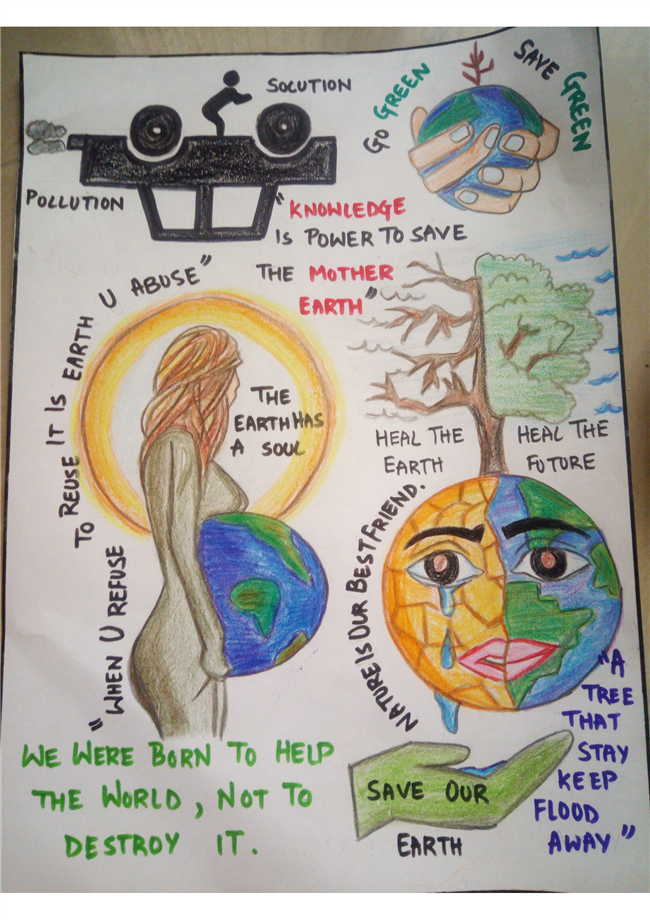 SOLUTION
POLLUTION
GO GREEN
SAVE GREEN
"KNOWLEDGE
IS POWER TO SAVE
THE MOTHER
EARTH"
"WHEN U REFUSE
TO REUSE IT IS EARTH
U ABUSE"
THE
EARTH HAS
A SOUL
HEAL THE
EARTH
HEAL THE
FUTURE
NATURE IS OUR BEST FRIEND.
WE WERE BORN TO HELP
THE WORLD, NOT TO
DESTROY IT.
SAVE OUR
EARTH
"A
TREE
THAT
STAY
KEEP
FLOOD
AWAY"